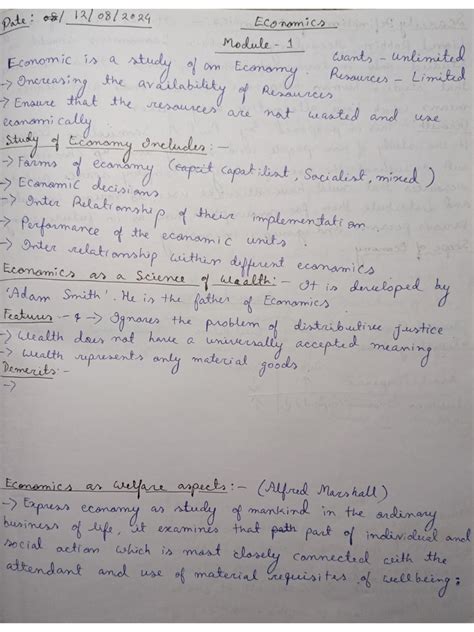 Date: 12/08/2024
Economics
Module - 1
Economic is a study of an Economy.
Wants - unlimited
Resources - Limited
-> Increasing the availability of Resources
-> Ensure that the resources are not wasted and use
economically
Study of Economy Includes:-
-> Forms of economy (capatilist, Socialist, mixed)
-> Economic decisions
-> Inter Relationship of their implementation
-> Performance of the economic units.
-> Inter relationship within different economics
Economics as a Science of Wealth:- It is developed by
'Adam Smith'. He is the father of Economics
Features :- -> Ignores the problem of distributive justice
-> Wealth does not have a universally accepted meaning
-> Wealth represents only material goods.
Demerits:-
->
Economics as Welfare aspects:- (Alfred Marshall)
-> Express economy as study of mankind in the ordinary
business of life, it examines that part of individual and
social action which is most closely connected with the
attendant and use of material requisites of wellbeing: